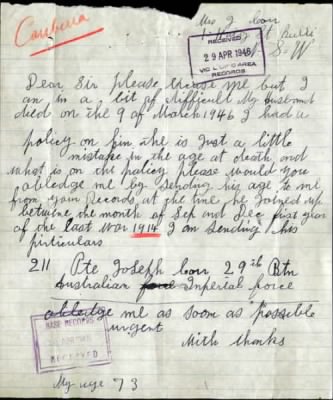 Canberra
Mrs J Corr
St Bulli
N.S.W
RECEIVED
29 APR 1946
VIC L OF C AREA
RECORDS
Dear Sir please excuse me but I
am in a bit of difficult My Husband
died on the 9 of March 1946 I had a
policy on him the is Just a little
mistake in the age at death and
what is on the policy please would you
abledge me by sending his age to me
from your Records at the time he Joined up
betwine the month of Sep and Dec first year
of the last War 1914 I am sending his
pirticulars
211 Pte Joseph Corr 29th Btn
Australian Imperial force
abledge me as soon as possible
urgent
With thanks
BASE RECORDS
RECEIVED
My age 73